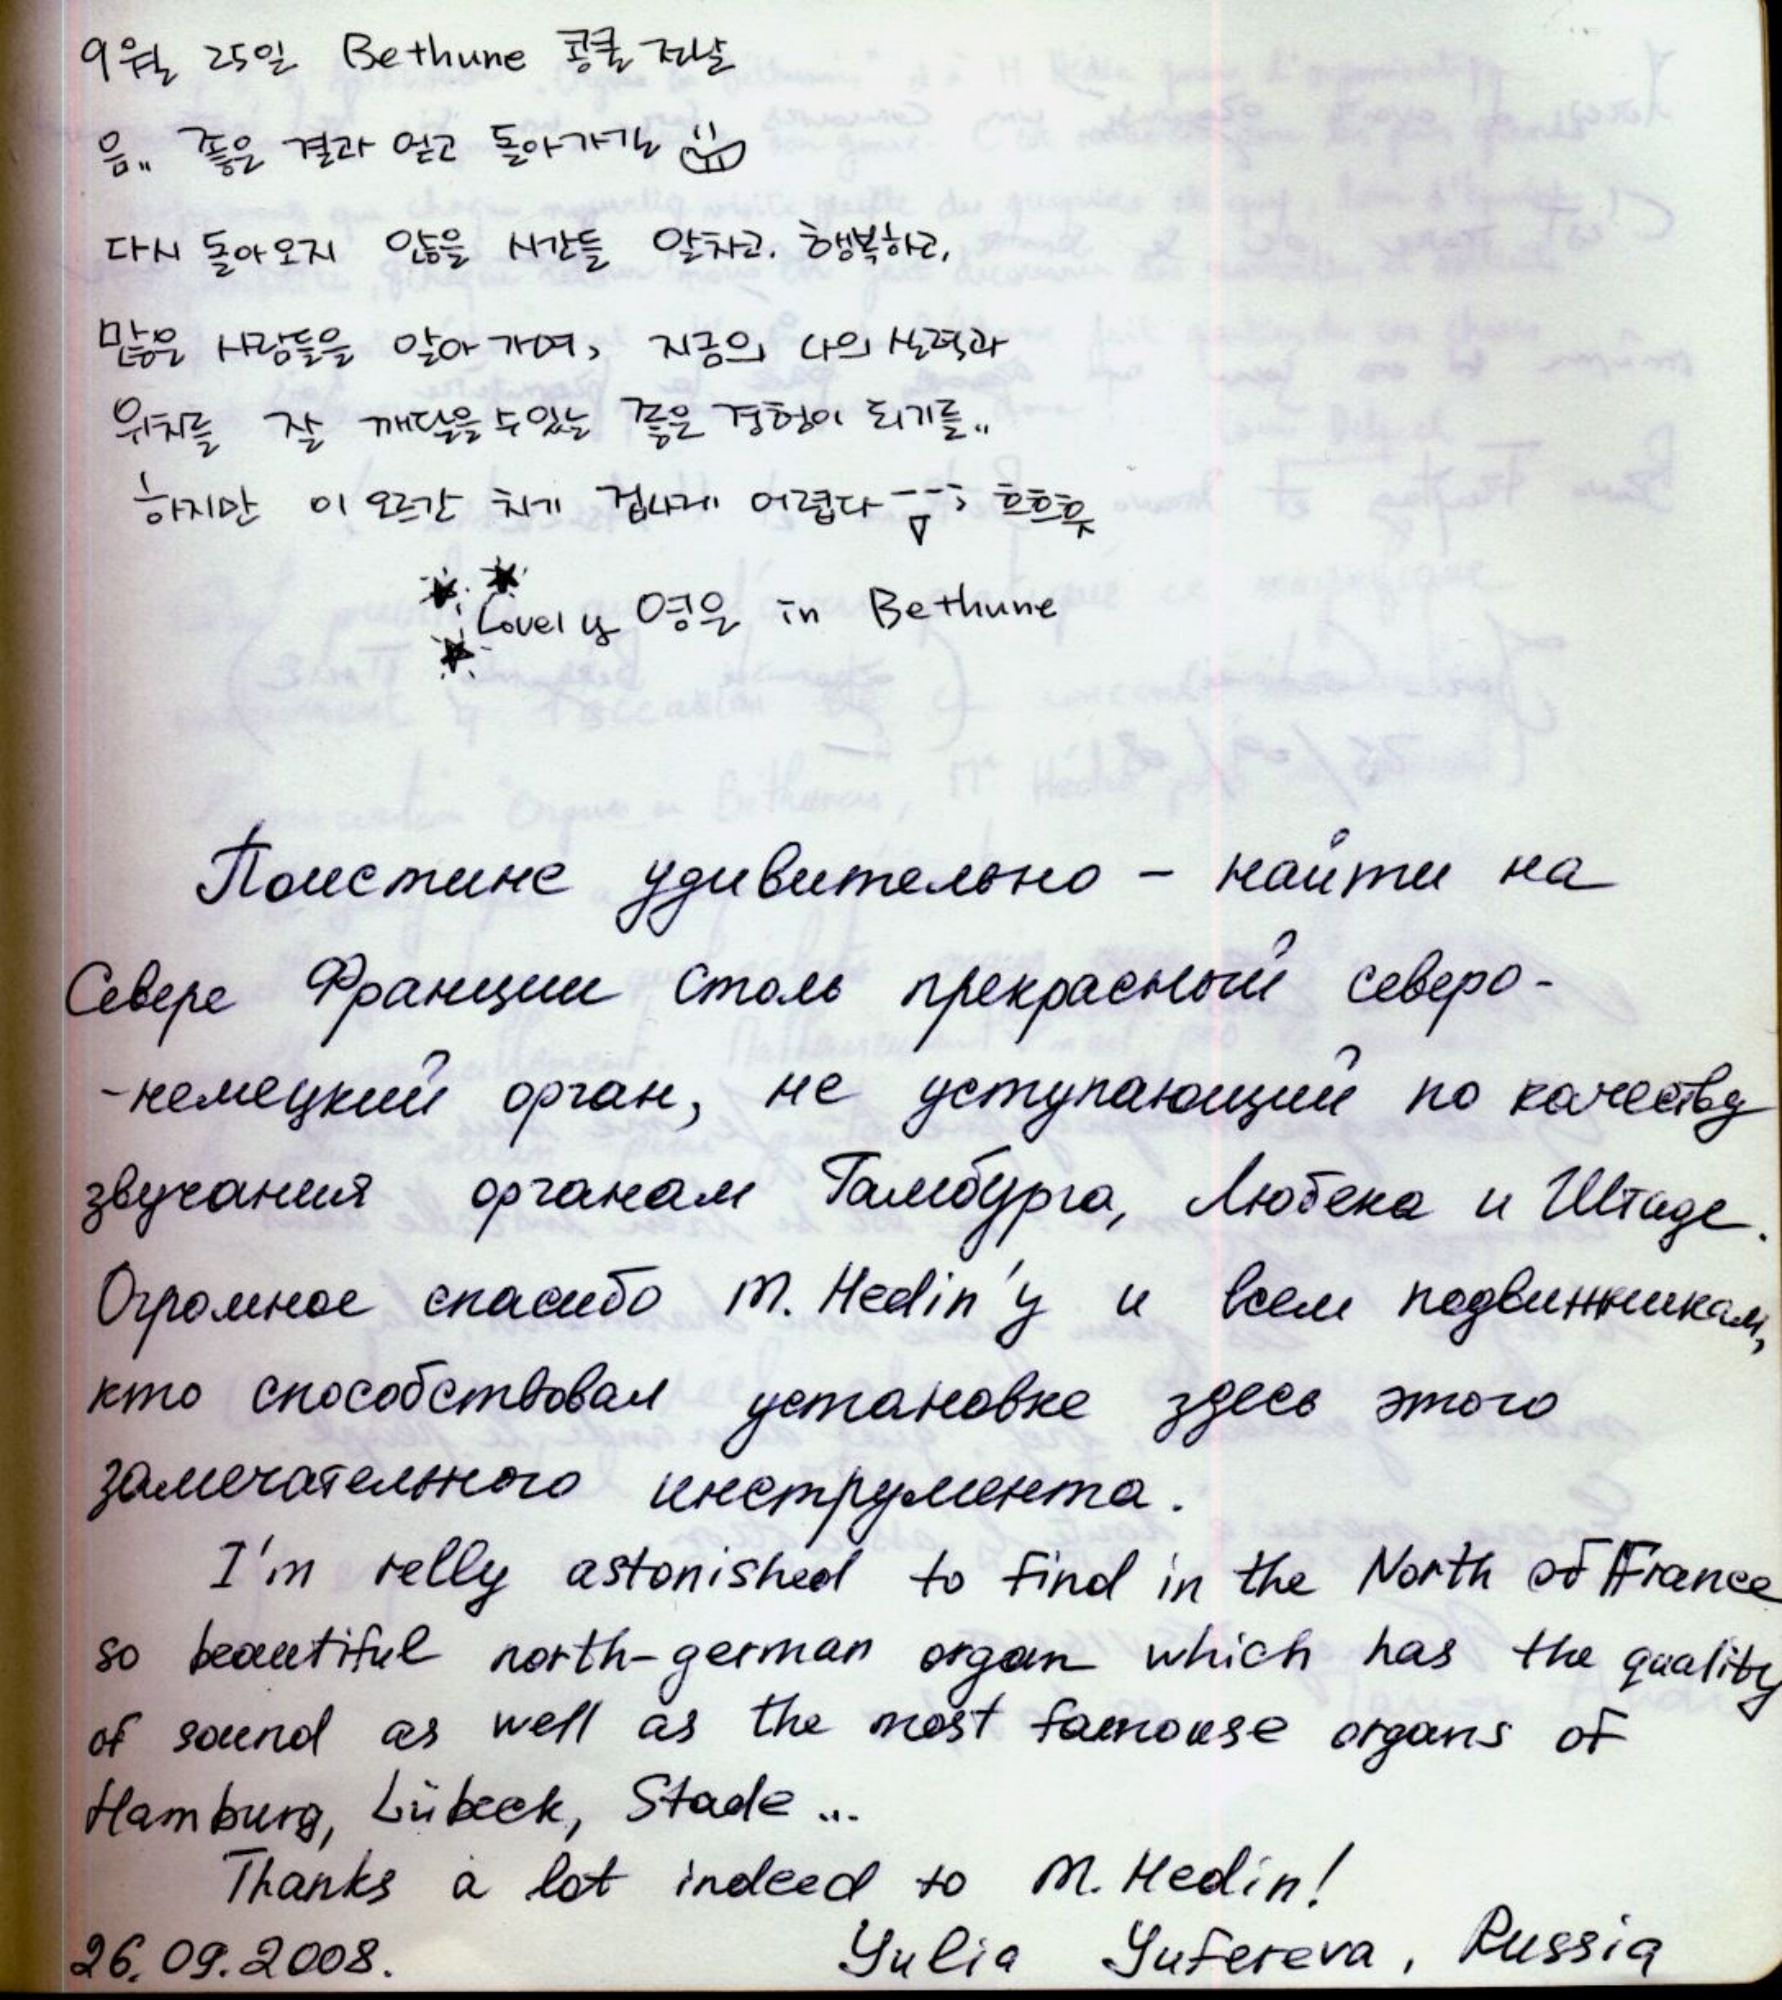 9월 25일 Bethune 콩쿨 전날
음.. 좋은 결과 얻고 돌아가길
다시 돌아오지 않을 시간들 알차고. 행복하고,
많은 사람들을 알아가며, 지금의 나의 실력과
위치를 잘 깨달을 수 있는 좋은 경험이 되기를..
하지만 이 오르간 치기 겁나게 어렵다 ㅡㅡ; 흐흐흣
Lovely 영은 in Bethune
Поистине удивительно - найти на
Севере Франции столь прекрасный северо-
-немецкий орган, не уступающий по качеству
звучания органам Гамбурга, Любека и Штаде.
Огромное спасибо M. Hedin'у и всем подвижникам,
кто способствовал установке здесь этого
замечательного инструмента.
I'm relly astonished to find in the North of France
so beautiful north-german organ which has the quality
of sound as well as the most famouse organs of
Hamburg, Lübeck, Stade ...
Thanks a lot indeed to M. Hedin!
26.09.2008. Yulia Yufereva, Russia